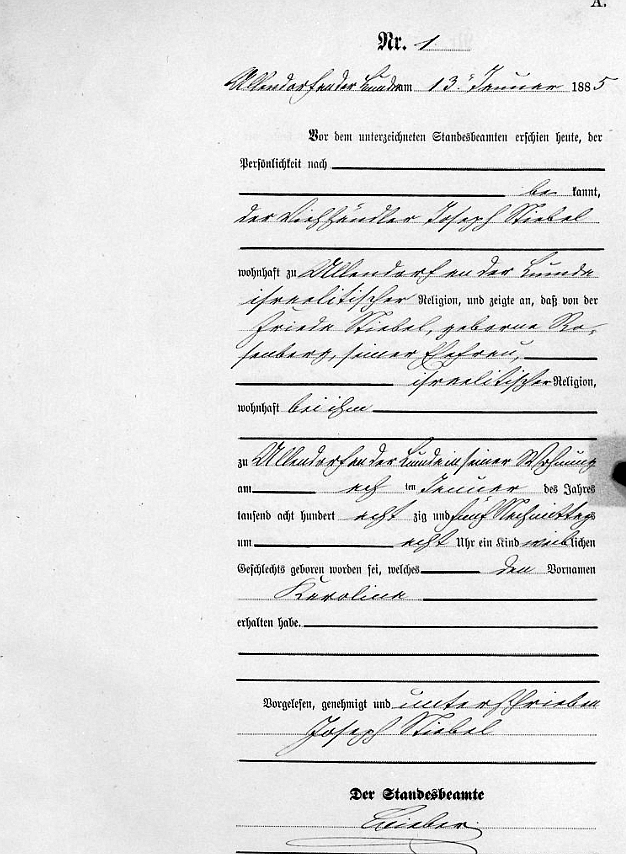 A.
Nr. 1.
Allendorf an der Lumda am 13. Januar 1885
Vor dem unterzeichneten Standesbeamten erschien heute, der
Persönlichkeit nach
be kannt,
der Viehhändler Joseph Stiebel
wohnhaft zu Allendorf an der Lumda
israelitischer Religion, und zeigte an, daß von der
Frieda Stiebel, geborne Ro-
senberg, seiner Ehefrau,
israelitischer Religion,
wohnhaft bei ihm
zu Allendorf an der Lumda in seiner Wohnung
am ach ten Januar des Jahres
tausend acht hundert acht zig und fünf Nachmittags
um acht Uhr ein Kind weiblichen
Geschlechts geboren worden sei, welches den Vornamen
Karolina
erhalten habe.
Vorgelesen, genehmigt und unterschrieben
Joseph Stiebel
Der Standesbeamte